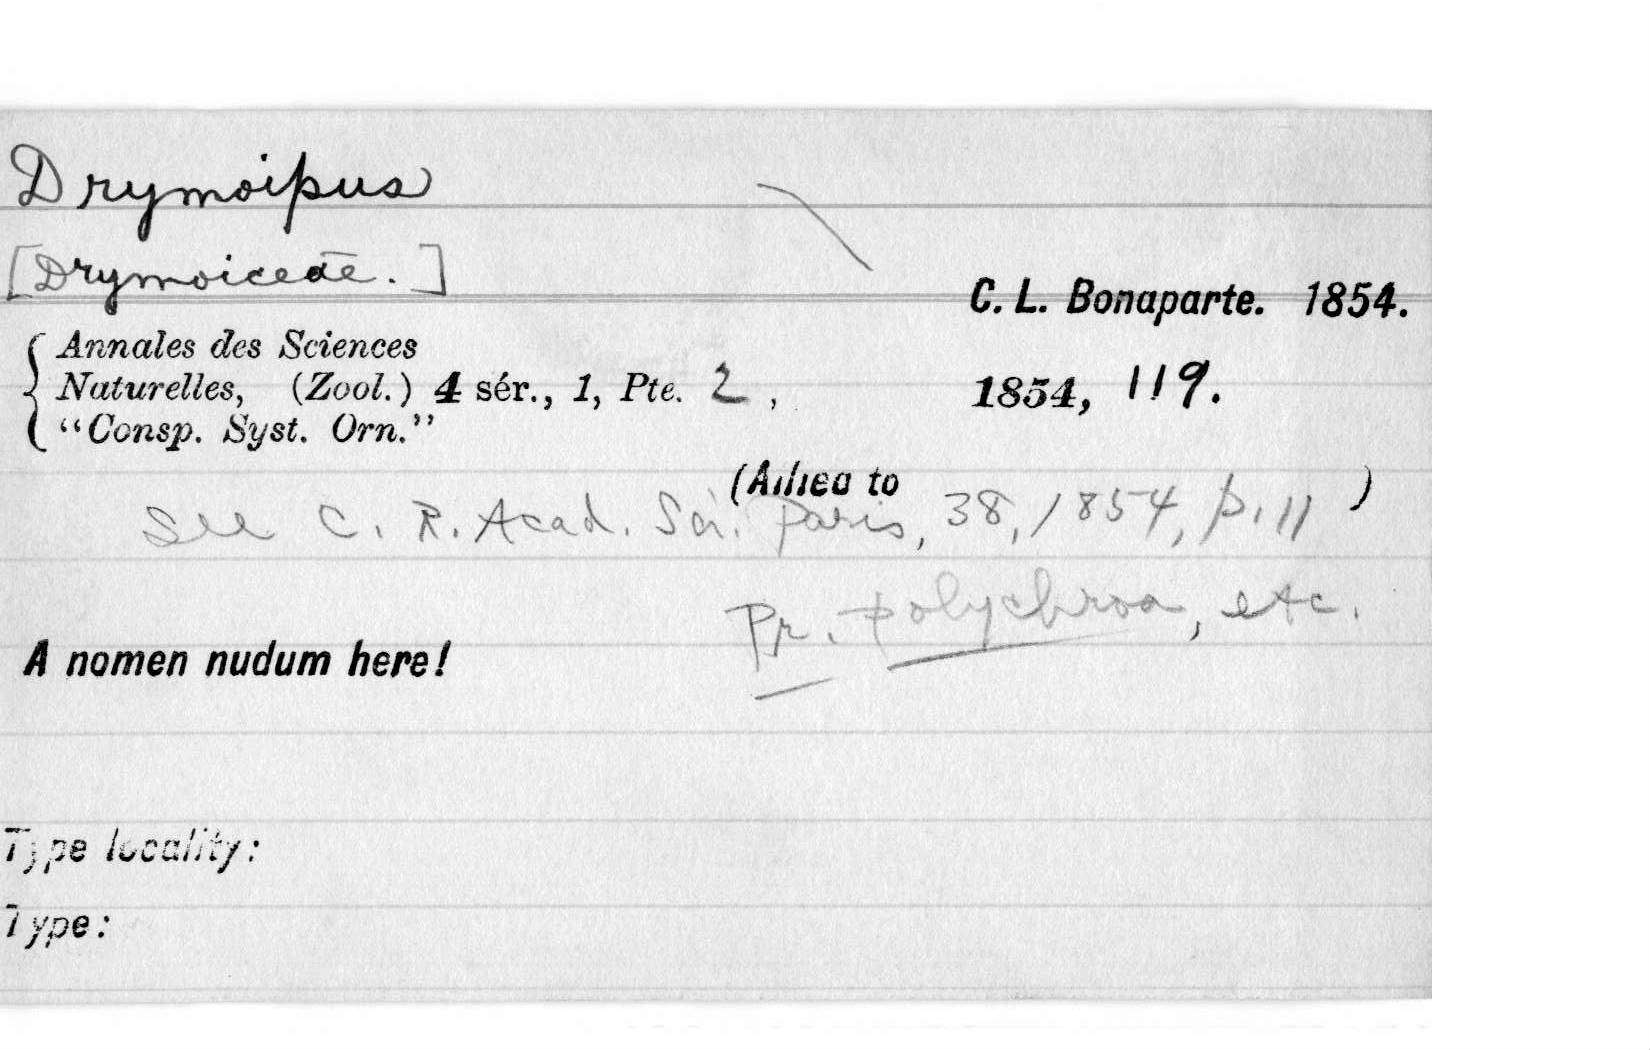 Drymoipus
[Drymoiceae.]
C. L. Bonaparte. 1854.
Annales des Sciences
Naturelles, (Zool.) 4 sér., 1, Pte. 2, 1854, 119.
"Consp. Syst. Orn."
(Allied to )
See C. R. Acad. Sci. Paris, 38, 1854, p. 11
Pr. polychroa, etc.
A nomen nudum here!
Type locality:
Type: